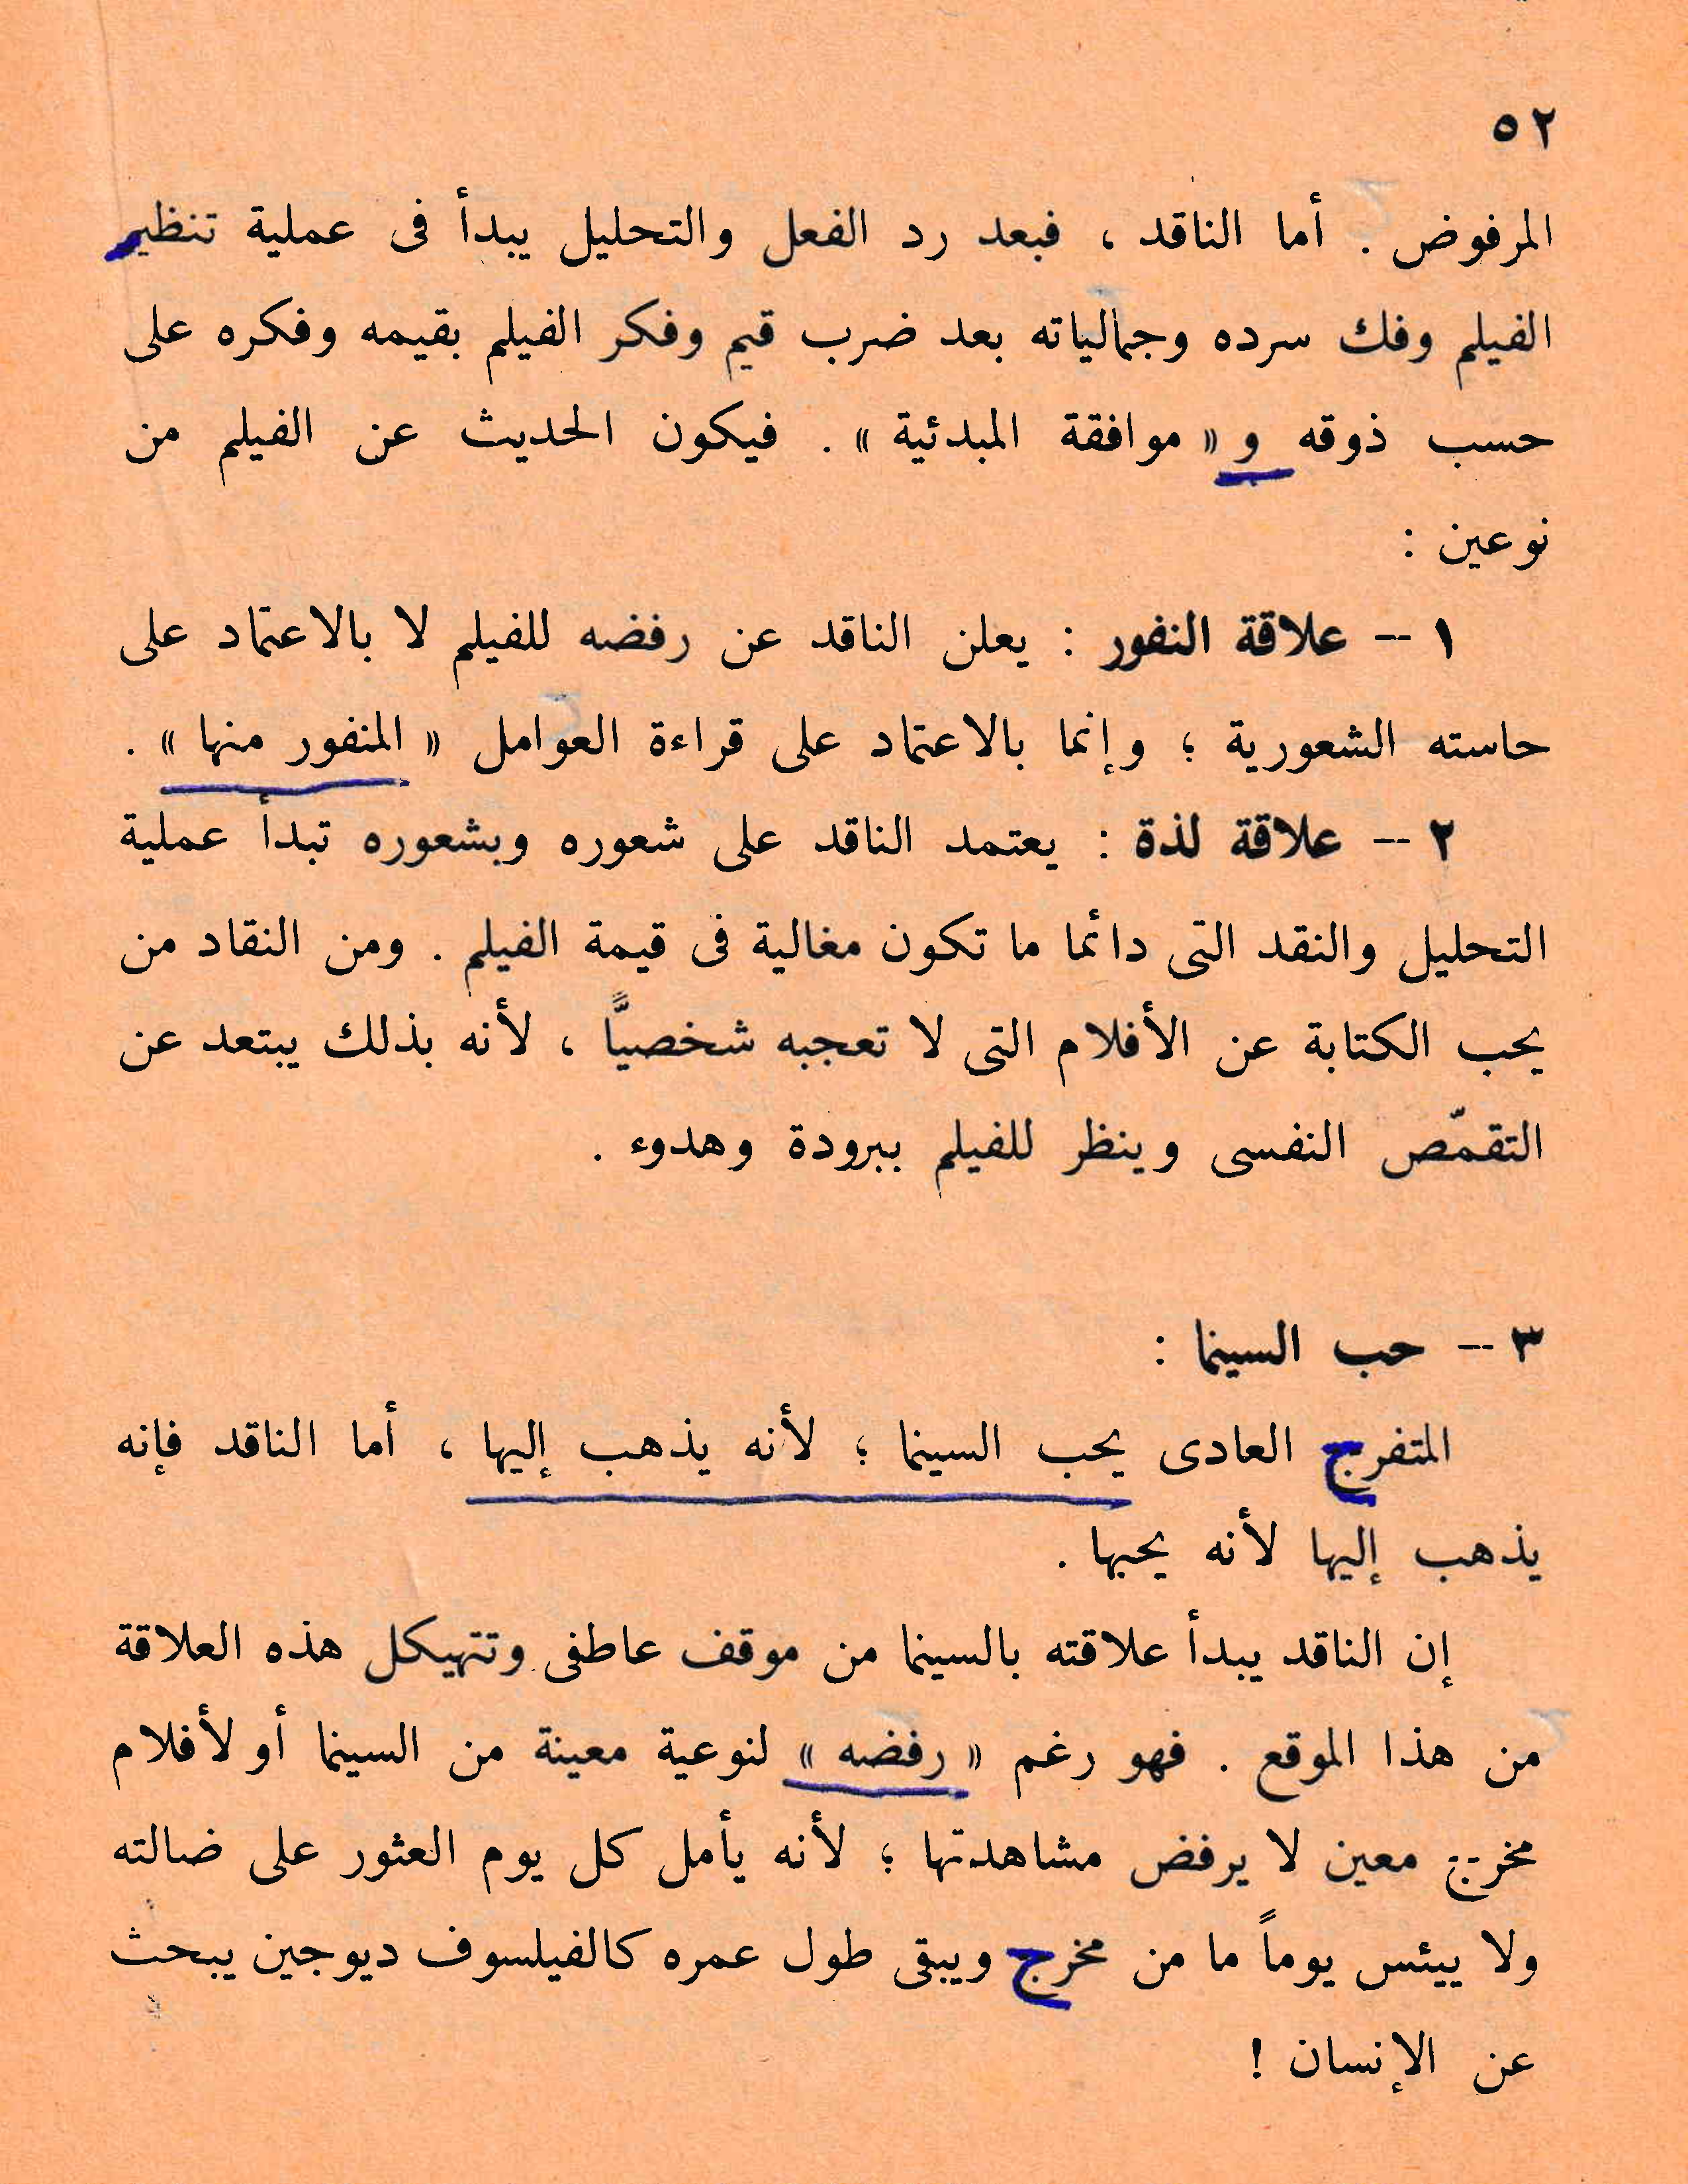 ٥٢
المرفوض . أما الناقد ، فبعد رد الفعل والتحليل يبدأ فى عملية تنظير
الفيلم وفك سرده وجمالياته بعد ضرب قيم وفكر الفيلم بقيمه وفكره على
حسب ذوقه و « موافقة المبدئية » . فيكون الحديث عن الفيلم من
نوعين :
١ -- علاقة النفور : يعلن الناقد عن رفضه للفيلم لا بالاعتماد على
حاسته الشعورية ؛ وإنما بالاعتماد على قراءة العوامل « المنفور منها » .
٢ -- علاقة لذة : يعتمد الناقد على شعوره وبشعوره تبدأ عملية
التحليل والنقد التى دائما ما تكون مغالية فى قيمة الفيلم . ومن النقاد من
يحب الكتابة عن الأفلام التى لا تعجبه شخصيًّا ، لأنه بذلك يبتعد عن
التقمّص النفسى وينظر للفيلم ببرودة وهدوء .
٣ -- حب السينما :
المتفرج العادى يحب السينما ؛ لأنه يذهب إليها ، أما الناقد فإنه
يذهب إليها لأنه يحبها .
إن الناقد يبدأ علاقته بالسينما من موقف عاطفى وتتهيكل هذه العلاقة
من هذا الموقع . فهو رغم « رفضه » لنوعية معينة من السينما أو لأفلام
مخرج معين لا يرفض مشاهدتها ؛ لأنه يأمل كل يوم العثور على ضالته
ولا ييئس يوماً ما من مخرج ويبقى طول عمره كالفيلسوف ديوجين يبحث
عن الإنسان !